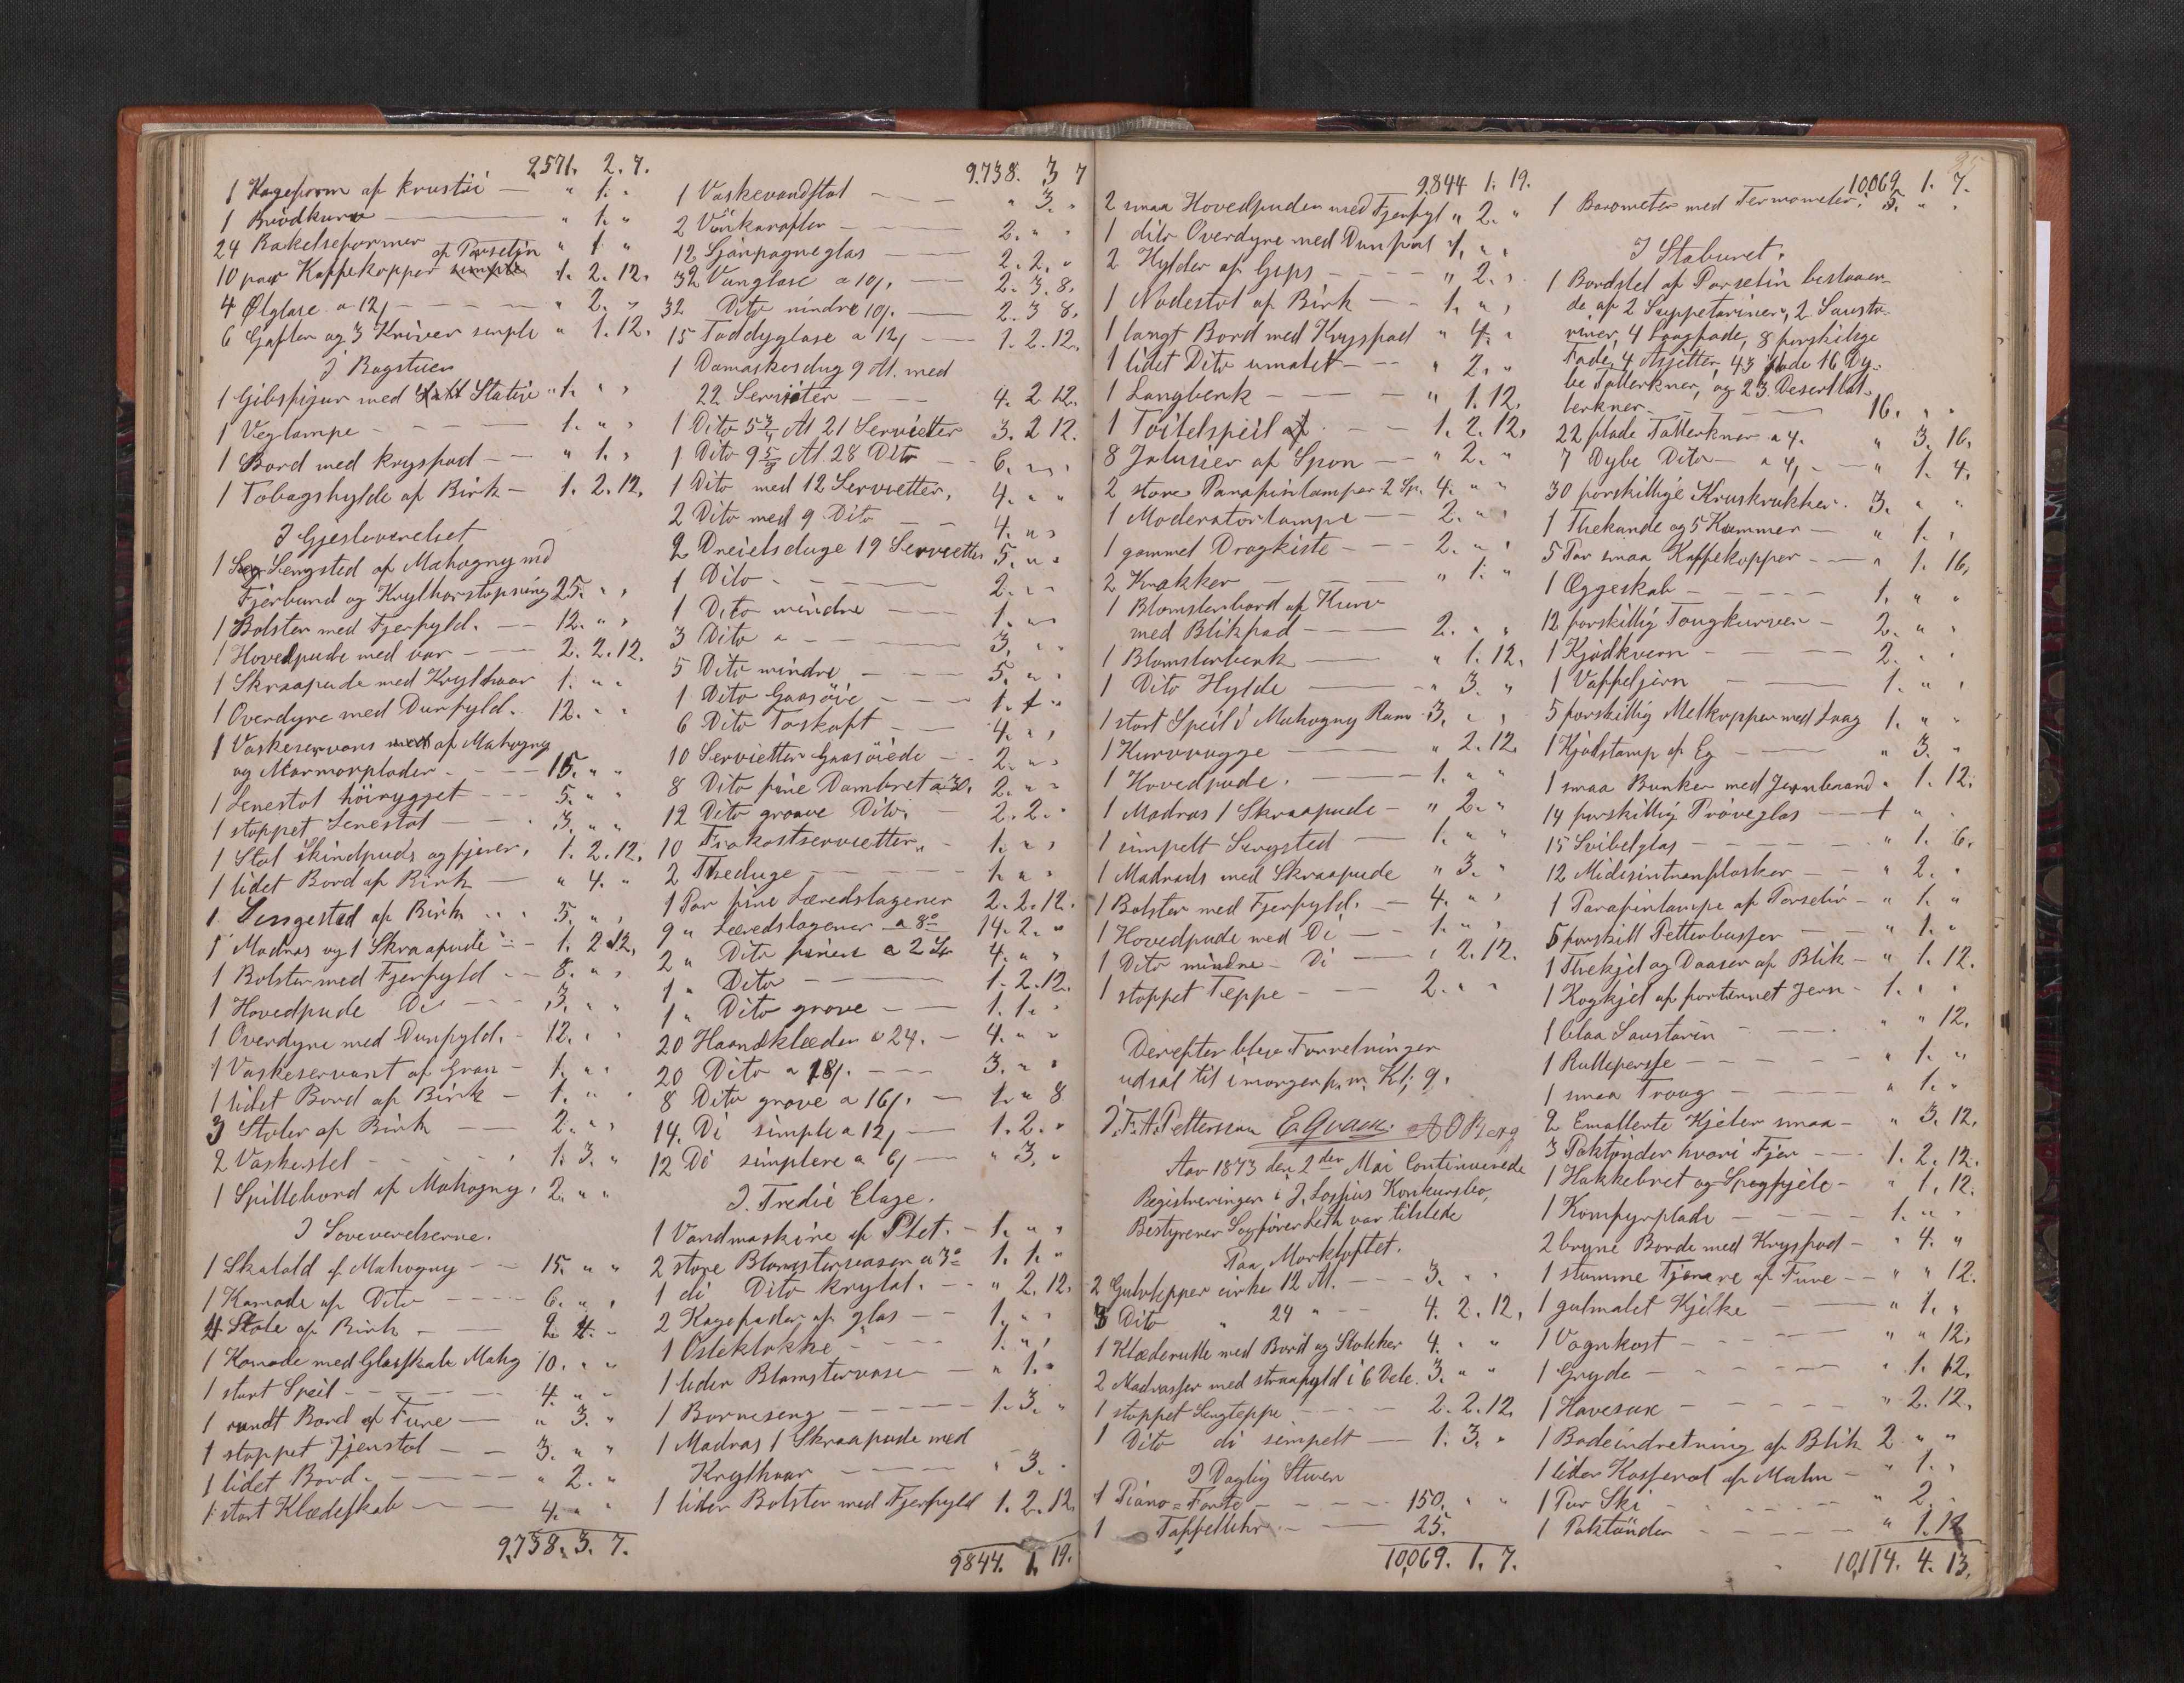 9571. 2. 7.
1 Kageform af Krustöi — " 1. "
1 Brödkurv — " 1. "
24 Bakelseformer " 1 "
af Porselin
10 par Kaffekopper simple 1. 2. 12.
4 Ölglase a 12/ — " 2. "
6 Gafler og 3 Kniver simple " 1. 12.
I Bagstuen
1 Gibsfigur med Stative " 1. " "
1 Veglampe — 1. " "
1 Bord med Krysfod — " 1. "
1 Tobagshylde af Birk — 1. 2. 12.
I Gjesteverelset
1 Sengsted af Mahogny med
Fjerbund og Krylhorstopning 25. " "
1 Bolster med Fjerfyld. — 12. " "
1 Hovedpude med var — 2. 2. 12.
1 Skraapude med Krylhaar 1. " "
1 Overdyne med Dunfyld. 12. " "
1 Vaskeservans med af Mahogny
og Marmorplader — 15. " "
1 Lenestol höirygget — 5. " "
1 stoppet Lenestol — 3. " "
1 Stol Skindpude og fjerer, 1. 2. 12.
1 lidet Bord af Birk — " 4. "
1 Sengested af Birk — 5. " "
1 Madras og 1 Skraapude — 1. 2. 12.
1 Bolster med Fjerfyld — 8. " "
1 Hovedpude Di — 3. " "
1 Overdyne med Dunfyld. — 12. " "
1 Vaskeservant af Gran — 1. " "
1 lidet Bord af Birk — 1. " "
3 Stoler af Birk — 2. " "
2 Vaskestel — 1. 3. "
1 Spillebord af Mahogny. 2. " "
I Soveverelserne.
1 Skatold af Mahogny — 15. " "
1 Komode af Dito — 6. " "
4 Stole af Birk — 2. 4. "
1 Komode med Glasskab Mahg 10. " "
1 stort Speil — 4. " "
1 rundt Bord af Fure — " 3. "
1 stoppet Lenstol — 3. " "
1 lidet Bord. — " 2. "
1 stort Klædeskab — 4. " "
9738. 3. 7.
9738. 3 7
1 Vaskevandstol — " 3. "
2 Vinkarafler — 2. " "
12 Sjampagneglas — 2. 2. "
32 Vinglase a 10/. — 2. 3. 8.
32 Dito mindre 10/. — 2. 3 8.
15 Toddyglase a 12/ — 1. 2. 12.
1 Damaskesdug 9 Al. med
22 Servieter — 4. 2 12.
1 Dito 5 3/4 Al 21 Servietter 3. 2 12.
1 Dito 9 5/8 Al. 28 Dito — 6. " "
1 Dito med 12 Servietter, 4. " "
2 Dito med 9 Dito — 4. " "
2 Dreielsduge 19 Servietter 5. " "
1 Dito — 2. " "
1 Dito mindre — 1. " "
3 Dito a — 3. " "
5 Dito mindre — 5. " "
1 Dito Gaasöie — 1. 1 "
6 Dito Toskaft — 4. " "
10 Servietter Gaasöiede — 2. " "
8 Dito fine Dambret a 30. 2. " "
12 Dito groave Dito. — 2. 2. "
10 Frokostservietter. — 1. " "
2 Theduge — 1. " "
1 Par fine Læredslagener 2. 2. 12.
9 " Læredslagener a 8 14. 2. "
2 " Dito finere a 2 Sp 4. " "
1 " Dito — 1. 2. 12.
1 " Dito grove — 1. 1. "
20 Haandklæder a 24. — 4. " "
20 Dito a 18/. — 3. " "
8 Dito grove a 16/. — 1. " 8
14. Di simple a 12/ — 1. 2. "
12 Di simplere a 6/ — " 3. "
I Tredie Etage.
1 Vandmaskine af Plet. — 1. " "
2 store Blomstervaser a 3 1. 1. "
1 di Dito krystal. — " 2. 12.
2 Kagefader af glas — 1. " "
1 Osteklokke — 1. " "
1 liden Blomstervase — " 1. "
1 Borneseng — 1. 3. "
1 Madras 1 Skraapude med
Krylhaar — " 3. "
1 liden Bolster med Fjerfyld 1. 2. 12.
9844. 1. 19.
9844 1. 19.
2 smaa Hovedpuder med Fjerfyl " 2. "
1 dito Overdyne med Dunfyld 1. " "
2 Hylder af Gips — " 2. "
1 Nodestol af Birk — 1. " "
1 langt Bord med Krysfod " 4. "
1 lidet Dito umalet — " 2. "
1 Langbenk — " 1. 12.
1 Toiletspeil — 1. 2. 12.
8 Jalusier af Spon — " 2. "
2 store Parafinlamper 2 Sp. 4. " "
1 Moderatorlampe — 2. " "
1 gammel Dragkiste — 2. " "
2 Krakker — " 1. "
1 Blomsterbord af Kurv
med Blikfad — 2. " "
1 Blomsterbenk — " 1. 12.
1 Dito Hylde — " 3. "
1 stort Speil i Mahogny Ram 3. " "
1 Kurvvugge — " 2. 12.
1 Hovedpude. — 1. " "
1 Madras 1 Skraapude — " 2. "
1 simpelt Sengsted — 1. " "
1 Madrads med Skraapude " 3. "
1 Bolster med Fjerfyld. — 4. " "
1 Hovedpude med Di — 1. " "
1 Dito mindre — Di — " 2. 12.
1 stoppet Teppe — 2. " "
Derefter blev Forretningen
udsat til imorgen f. m. Kl; 9.
J. F. A. Petterssen E. Qvam A O Berg
Aar 1873 den 2den Mai Continuerede
Registreringen i J. Lossius Konkursbo,
Bestyreren Sagfører Leth var tilstede
Paa Markloftet.
2 Gulvtepper cirka 12 Al. — 3. " "
3 Dito " 24 " — 4. 2. 12.
1 Klæderulle med Bord og Stokker 4. " "
2 Madrasser med straafyld i 6 Dele. 3. " "
1 stoppet Sengteppe — 2. 2. 12.
1 Dito di simpelt — 1. 3. "
I Daglig Stuen
1 Piano=Forte — 150. " "
1 Taffeluhr — 25.
10,069. 1. 7.
10,069. 1. 7.
1 Barometer med Termometer. 5. " "
I Staburet.
1 Bordstel af Porselin bestaaen-
de af 2 Suppeteriner, 2 Sauste-
riner, 4 Laagfade, 8 forskilige
Fade, 4 Asjetter, 43 flade 16 Dy-
be Tallerkner, og 23 Desertal-
lerkner — 16. " "
22 flade Tallerkner a 4. " 3. 16.
7 Dybe Dito a 4, — " 1. 4.
30 forskillige Kruskrukker. 3. " "
1 Thekande og 5 Kummer — " 1. "
5 Par smaa Kaffekopper — " 1. 16.
1 Æggeskab — 1. " "
12 forskillig Tougkurver — 2. " "
1 Kjödkvern — 2. " "
1 Vaffeljern — 1. " "
5 forskillig Melkopper med Laag 1. " "
1 Kjölstamp af Eg — " 3. "
1 smaa Bunker med Jernbaand " 1. 12.
14 forskillig Pröveglas — 1 " "
15 Svibelglas — " 1. 6.
12 Midisintranflasker — " 2. "
1 Parafinlampe af Porselin — " 1. "
5 forskill Petterbusser — " 1. "
1 Thekjel og Daaser af Blik — " 1. 12.
1 Kogkjel af fortinnet Jern — 1. " "
1 blaa Saustarin — " " 12.
1 Rullepersse — " 1. "
1 smaa Troug — " 1. "
2 Emallerte Kjeler smaa — " 3. 12.
3 Paktönder hvori Fjer — 1. 2. 12.
1 Hakkebret og — " 1. 12.
1 Komfyrplade — 1. " "
2 brune Borde med Krysfod — " 4. "
1 stumme Tjenere af Fure — " " 12.
1 gulmalet Kjelke — " 1. "
1 Vognkost — " " 12.
1 Gryde — " 1. 12.
1 Havesax — " 2. 12.
1 Badeindretning af Blik 2 " "
1 liden Kasserol af Malm — " 1. "
1 Par Ski — " 2. "
1 Paktönder — " 1. 12
10,114. 4. 13.